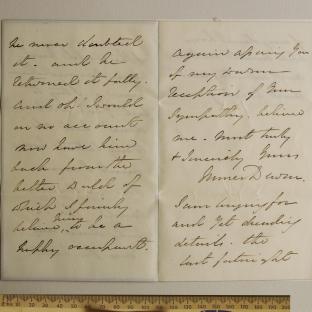 he never doubted
it. and he
returned it fully.
and oh. I would
on no account
now have him
back from the
better world of
which I firmly
believe, him to be a
happy occupant.
again assuring you
of my warm
reception of your
sympathy. believe
me. most truly
& sincerely yours
I am longing for
and yet dreading
details. the
last fortnight